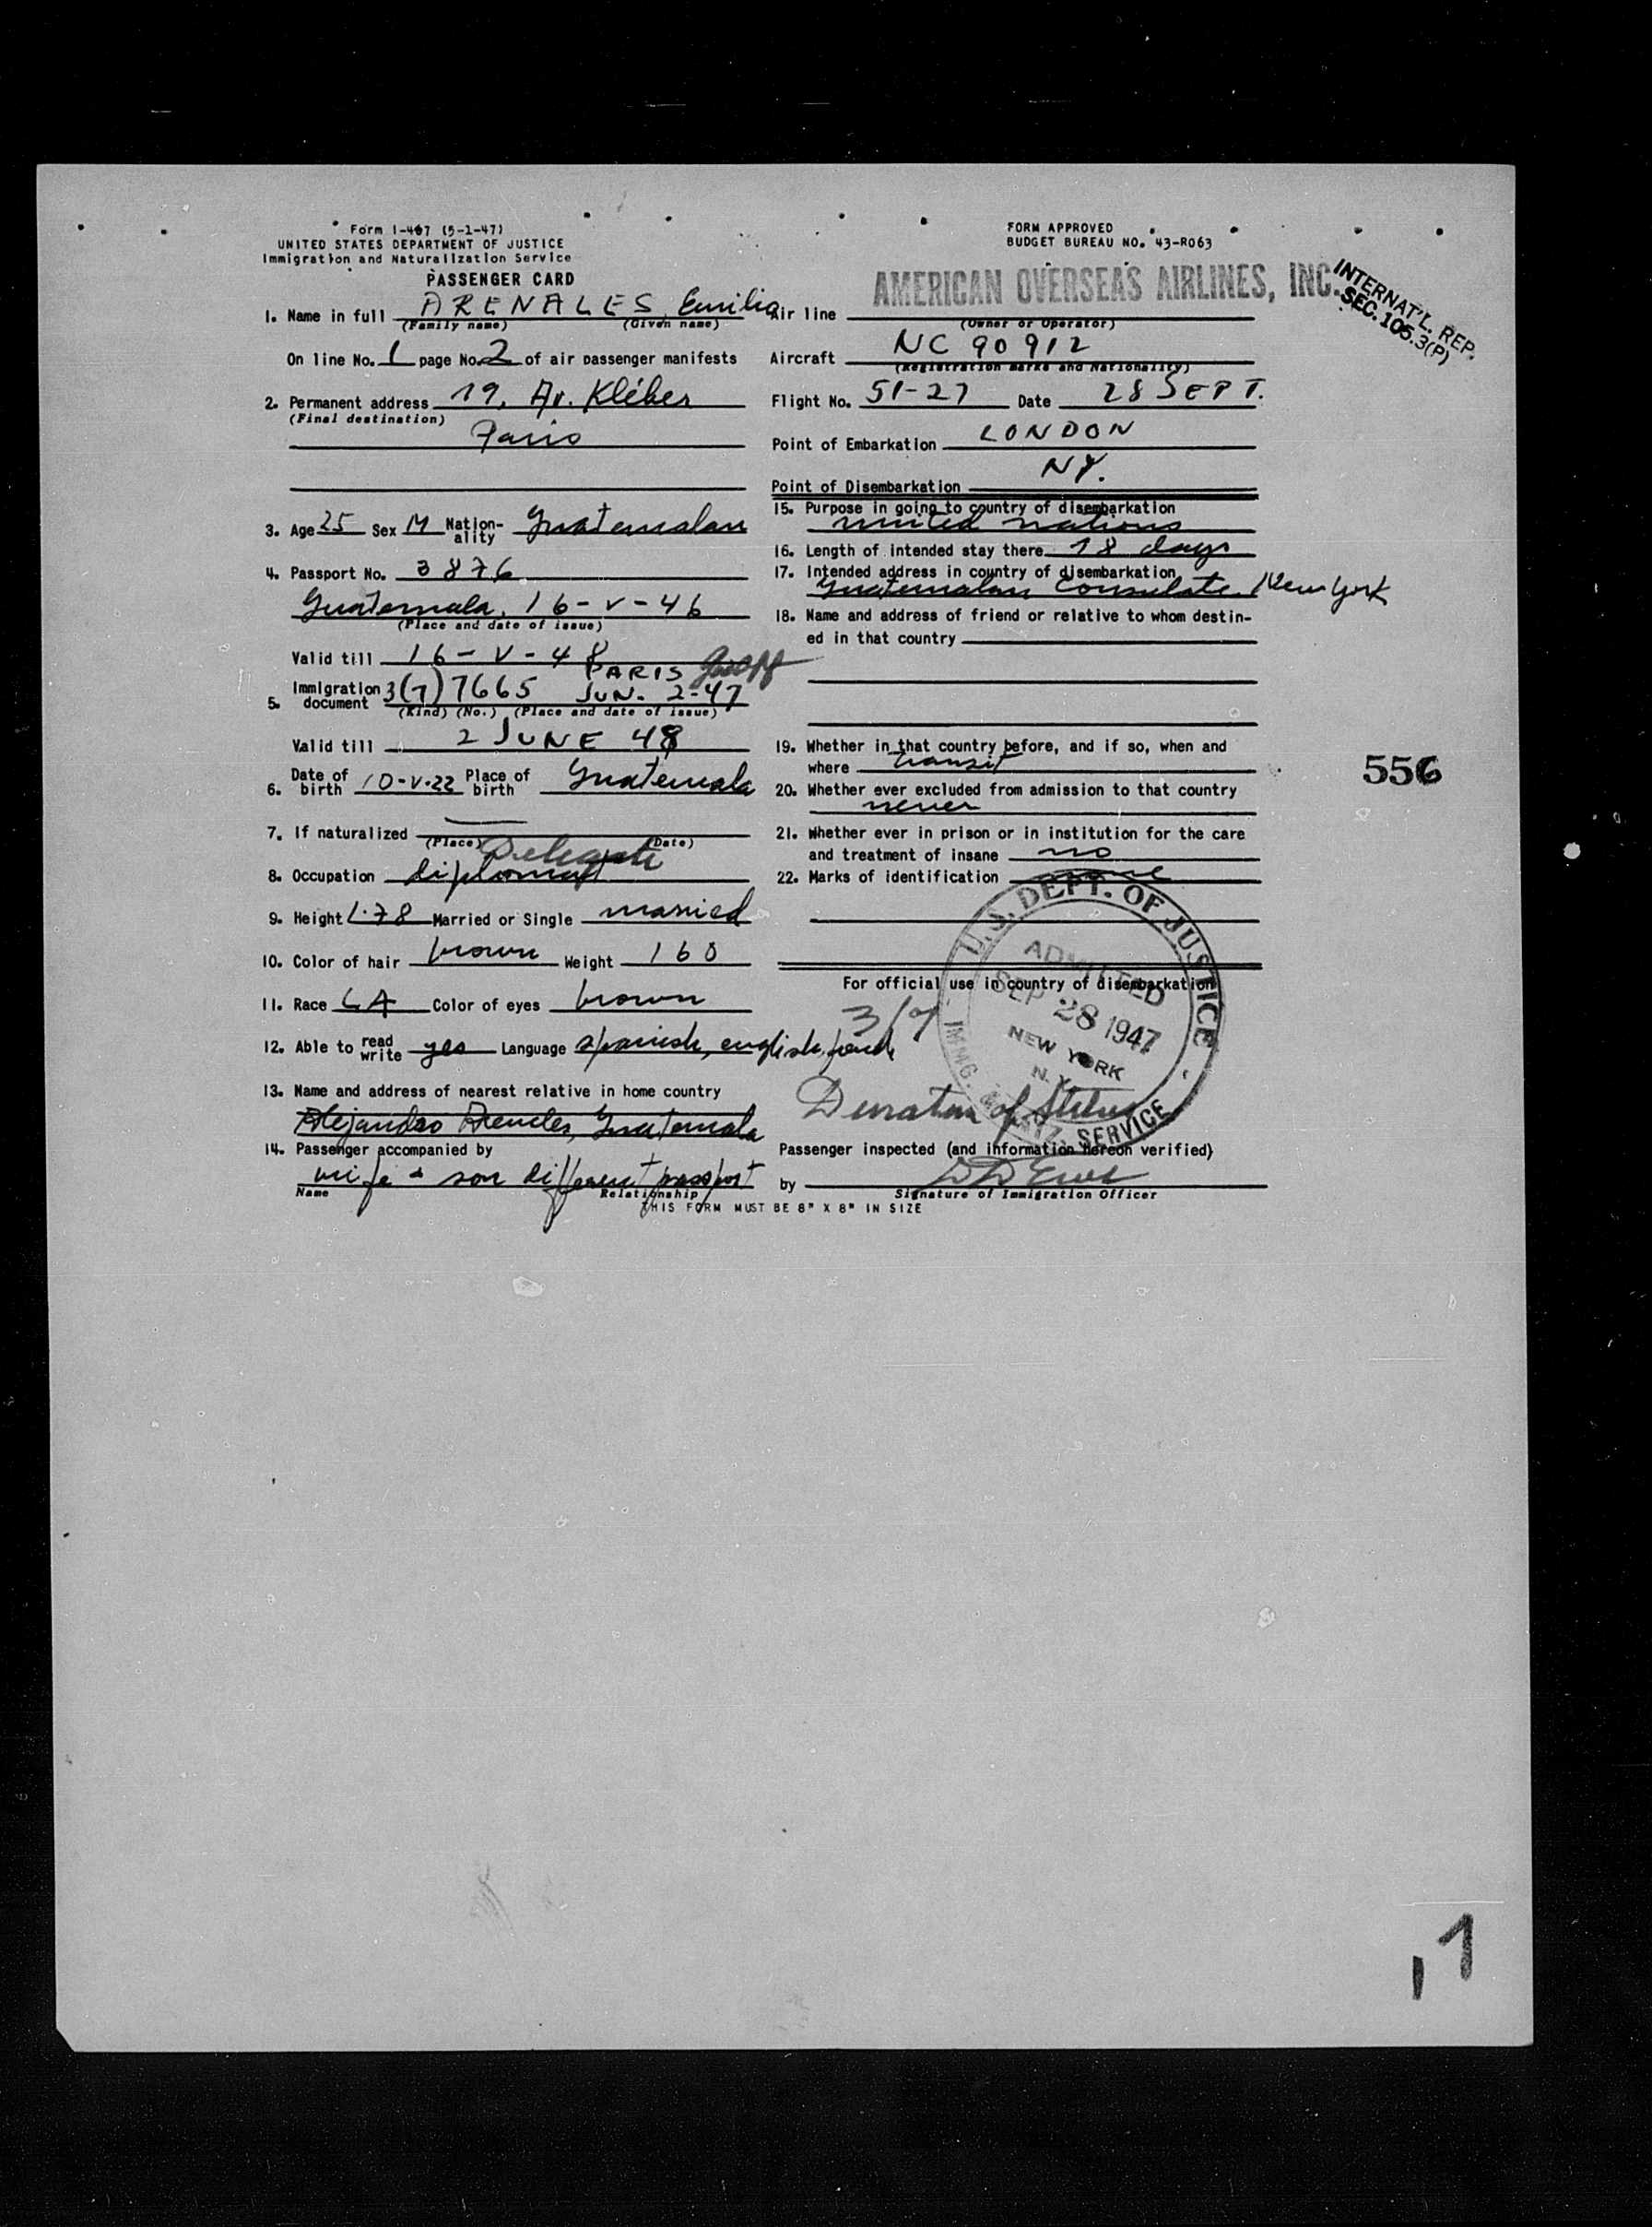 Form I-467 (5-1-47)
UNITED STATES DEPARTMENT OF JUSTICE
Immigration and Naturalization Service
PASSENGER CARD
1. Name in full ARENALES, Emilio
(Family name) (Given name)
On line No. 1 page No. 2 of air passenger manifests
2. Permanent address 19, Av. Kléber
(Final destination)
Paris
3. Age 25 Sex M Nation-ality Guatemalan
4. Passport No. 3876
Guatemala, 16-V-46
(Place and date of issue)
Valid till 16-V-48
PARIS
5. Immigration document 3(7) 7665 JUN. 2-47
(Kind) (No.) (Place and date of issue)
Valid till 2 JUNE 48
6. Date of birth 10-V-22 Place of birth Guatemala
7. If naturalized —
(Place) (Date)
Delegate
8. Occupation diplomat
9. Height 1.78 Married or Single married
10. Color of hair brown Weight 160
11. Race LA Color of eyes brown
12. Able to read write yes Language spanish, english, french
13. Name and address of nearest relative in home country
Alejandro Arenales, Guatemala
14. Passenger accompanied by
wife & son different passport
Name Relationship
THIS FORM MUST BE 8" X 8" IN SIZE
FORM APPROVED
BUDGET BUREAU NO. 43-R063
AMERICAN OVERSEAS AIRLINES, INC.
INTERNAT'L. REP.
SEC. 105.3(P)
Air line
(Owner or Operator)
Aircraft NC 90912
(Registration marks and Nationality)
Flight No. 51-27 Date 28 SEPT.
Point of Embarkation LONDON
Point of Disembarkation NY.
15. Purpose in going to country of disembarkation
united nations
16. Length of intended stay there 78 days
17. Intended address in country of disembarkation
Guatemalan Consulate, New York
18. Name and address of friend or relative to whom destin-
ed in that country
19. Whether in that country before, and if so, when and
where transit
20. Whether ever excluded from admission to that country
never
21. Whether ever in prison or in institution for the care
and treatment of insane no
22. Marks of identification none
556
For official use in country of disembarkation
3/7
U.S. DEPT. OF JUSTICE
ADMITTED
SEP 28 1947
NEW YORK
N.Y.
IMMG. & NATZ. SERVICE
Duration of Status
Passenger inspected (and information hereon verified)
by
Signature of Immigration Officer